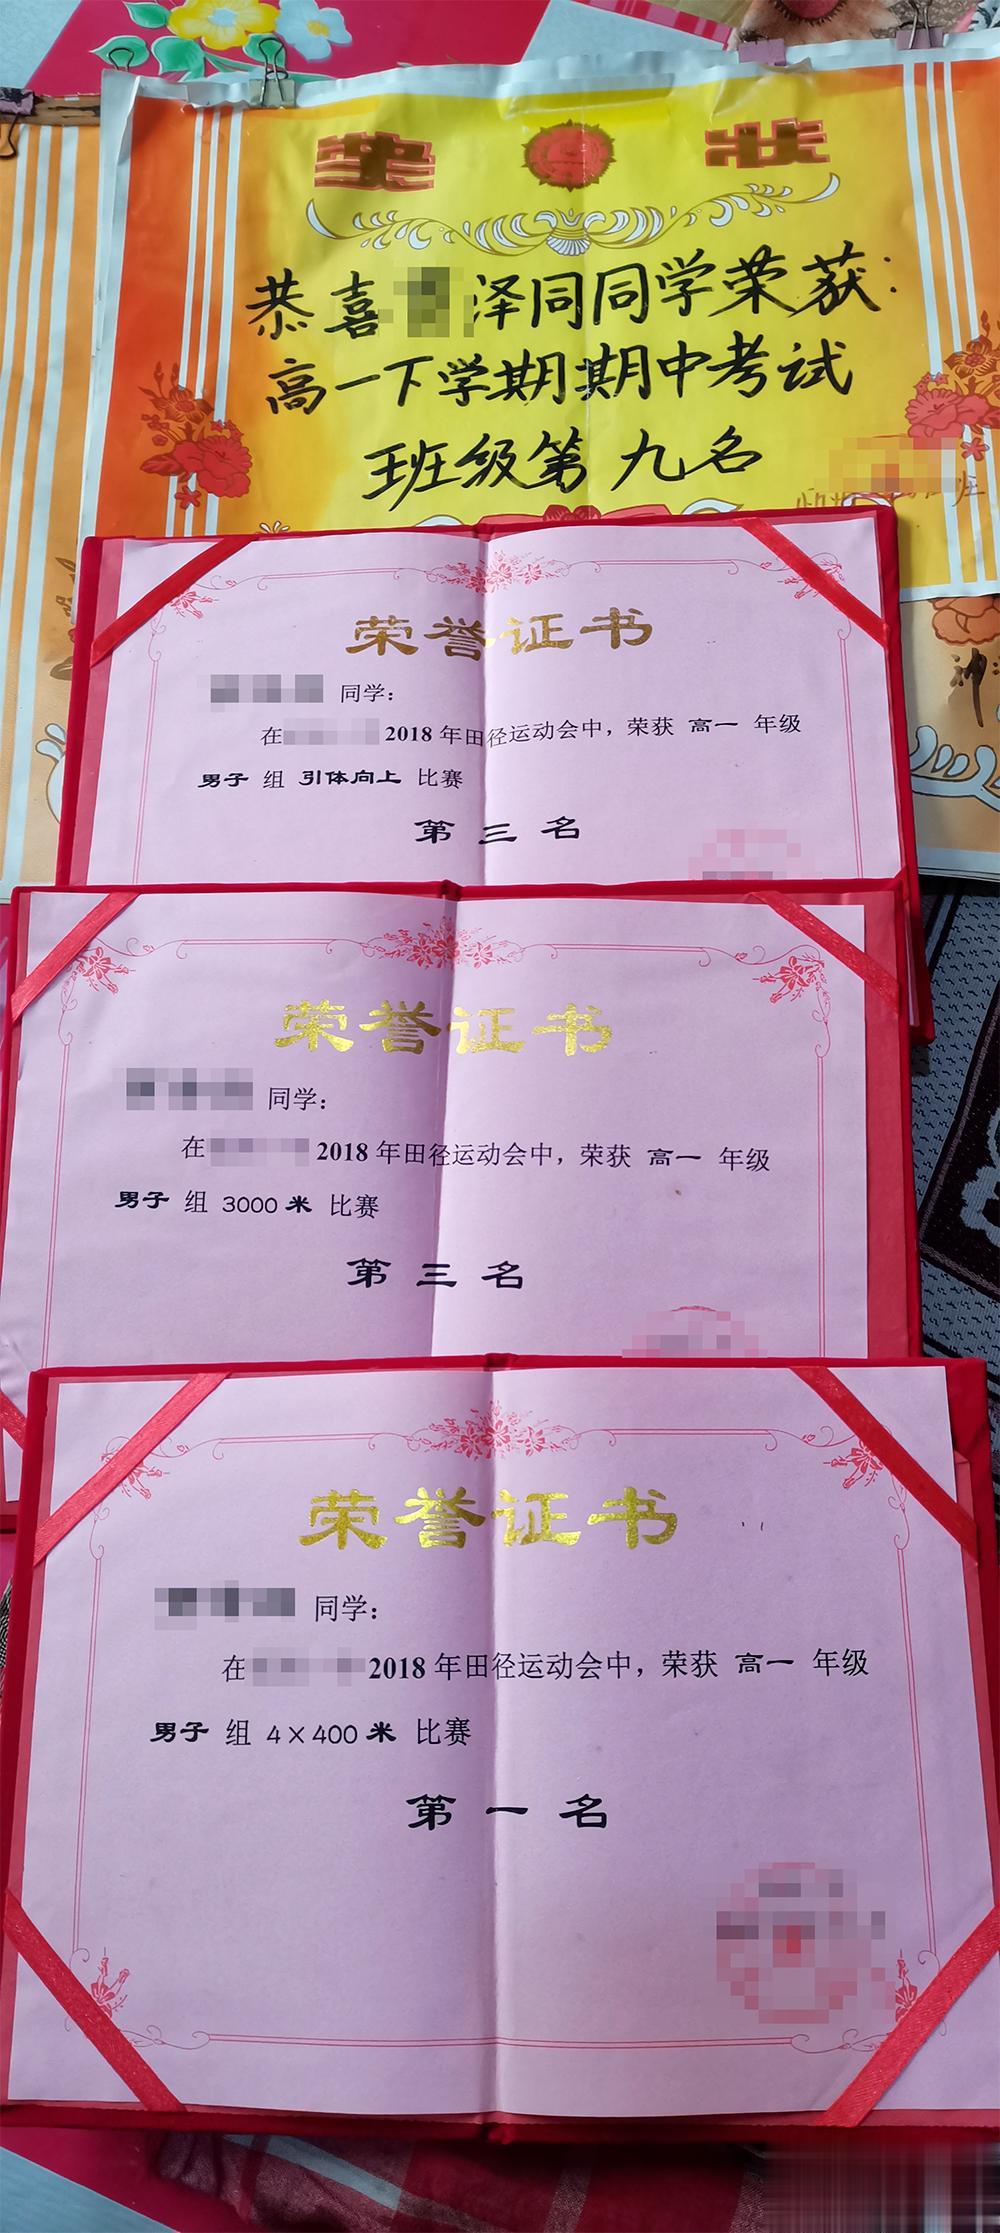 奖状
恭喜泽同同学荣获:
高一下学期期中考试
班级第九名
荣誉证书
同学:
在2018年田径运动会中，荣获 高一 年级
男子 组 引体向上 比赛
第三名
荣誉证书
同学:
在2018年田径运动会中，荣获 高一 年级
男子 组 3000米 比赛
第三名
荣誉证书
同学:
在2018年田径运动会中，荣获 高一 年级
男子 组 4×400米 比赛
第一名